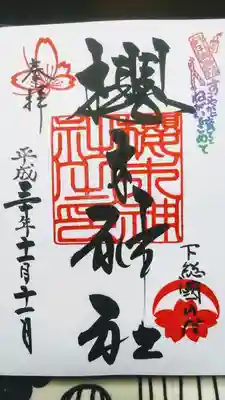 ねがいをこめて
奉拝
櫻木神社
櫻木神
社之印
下総國
平成三十年十一月十一日